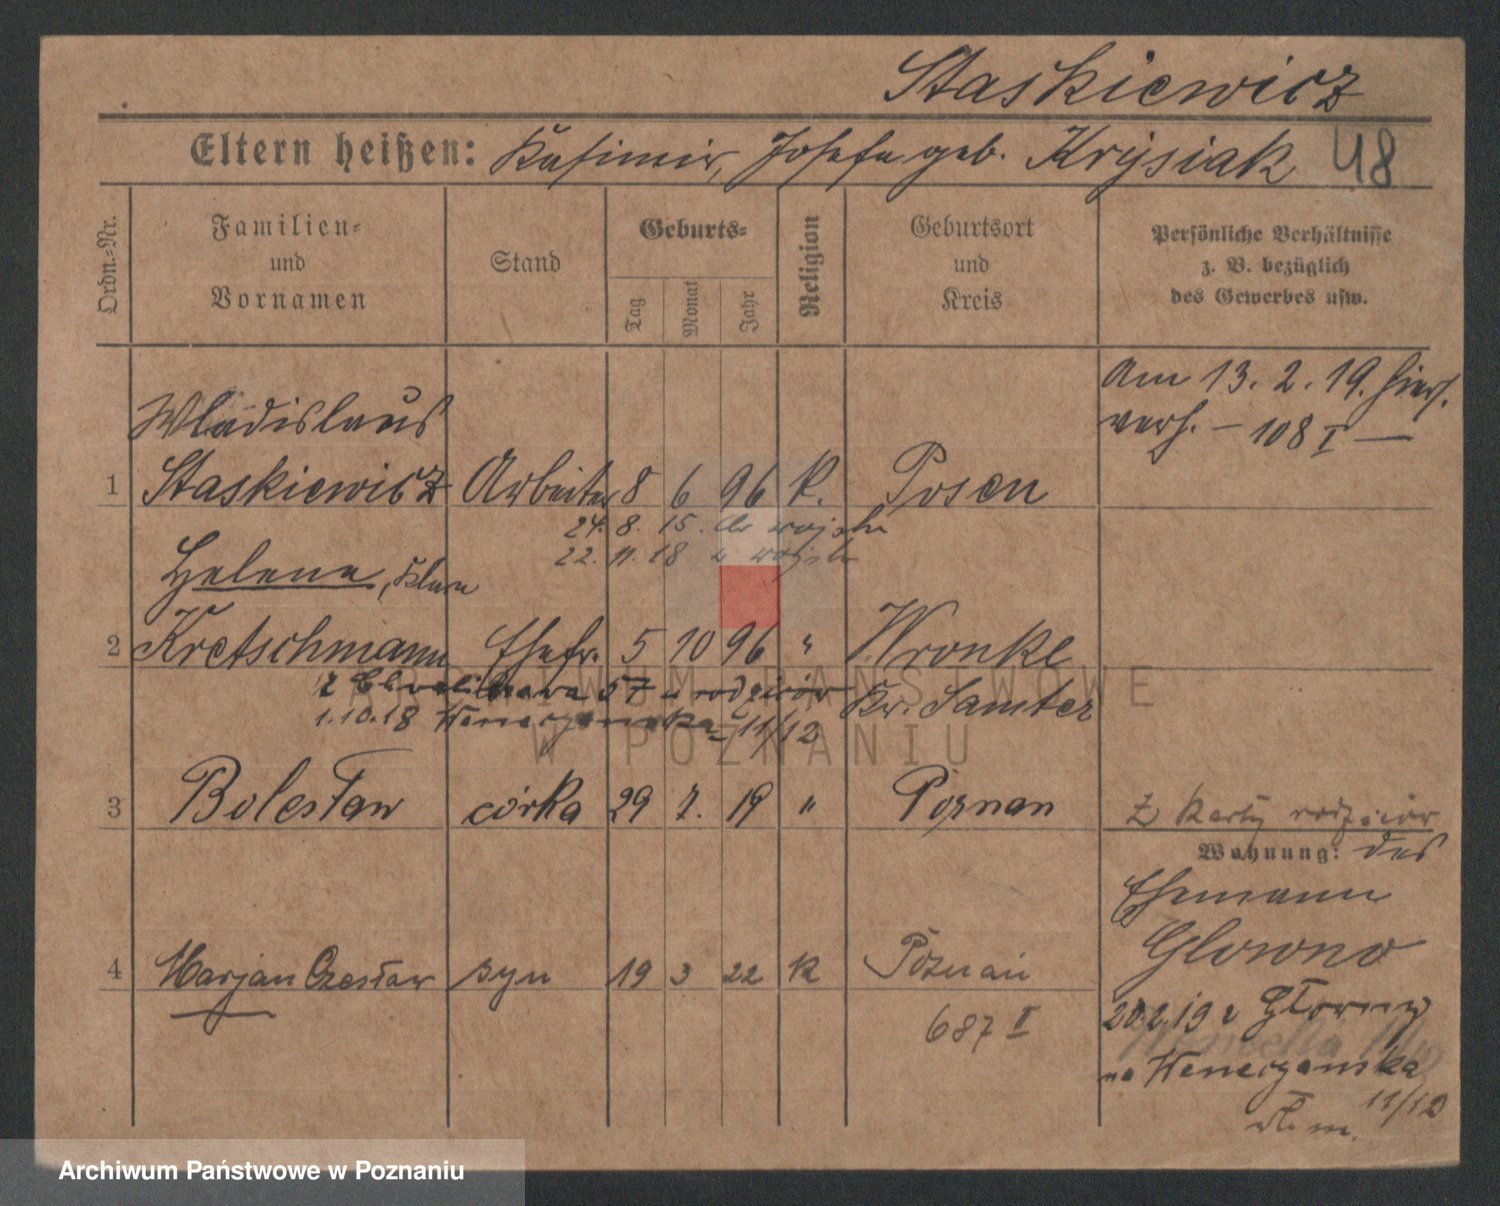 Staskiewicz
Eltern heißen: Kasimir, Josefa geb. Krysiak 48
Ordn.-Nr.
Familien- und Vornamen
Stand
Geburts-
Tag
Monat
Jahr
Religion
Geburtsort und Kreis
Persönliche Verhältnisse
z. B. bezüglich
des Gewerbes usw.
Am 13. 2. 19. hier
verh. – 108 I –
Wladislaus
1 Staskiewicz Arbeiter 8 6 96 K. Posen
24. 8. 15. do wojska
22. 11. 18 z wojska
Helene, Klara
2 Kretschmann Ehefr. 5 10 96 " Wronke
57 u rodziców Kr. Samter
1.10.18 11/12
3 Bolesław córka 29 7. 19 " Poznan
Z karty rodziców
Wohnung: des
Ehemann
Glowno
4 Marjan Czesław syn 19 3 22 K Poznań
687 I
20.2.19 z Główny
na Wenecjanska
11/12
ARCHIWUM PAŃSTWOWE
W POZNANIU
Archiwum Państwowe w Poznaniu